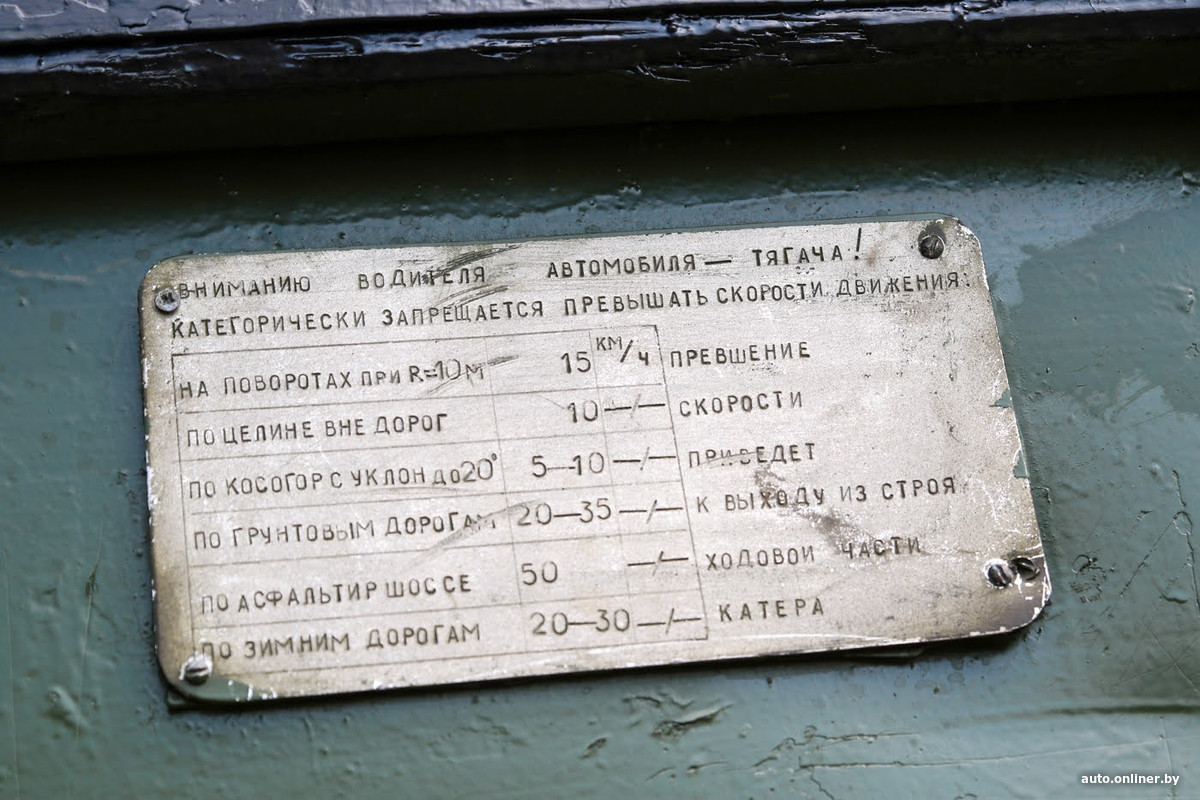 ВНИМАНИЮ ВОДИТЕЛЯ АВТОМОБИЛЯ — ТЯГАЧА!
КАТЕГОРИЧЕСКИ ЗАПРЕЩАЕТСЯ ПРЕВЫШАТЬ СКОРОСТИ ДВИЖЕНИЯ:
НА ПОВОРОТАХ ПРИ R=10М 15 КМ/Ч ПРЕВШЕНИЕ
ПО ЦЕЛИНЕ ВНЕ ДОРОГ 10 —/— СКОРОСТИ
ПО КОСОГОР С УКЛОН ДО 20° 5—10 —/— ПРИВЕДЕТ
ПО ГРУНТОВЫМ ДОРОГАМ 20—35 —/— К ВЫХОДУ ИЗ СТРОЯ
ПО АСФАЛЬТИР ШОССЕ 50 —/— ХОДОВОИ ЧАСТИ
ПО ЗИМНИМ ДОРОГАМ 20—30 —/— КАТЕРА
auto.onliner.by